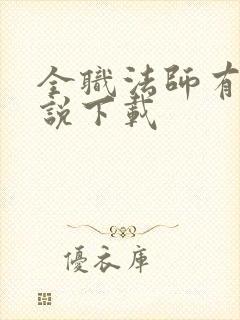 全職法師有
說下載
優衣庫